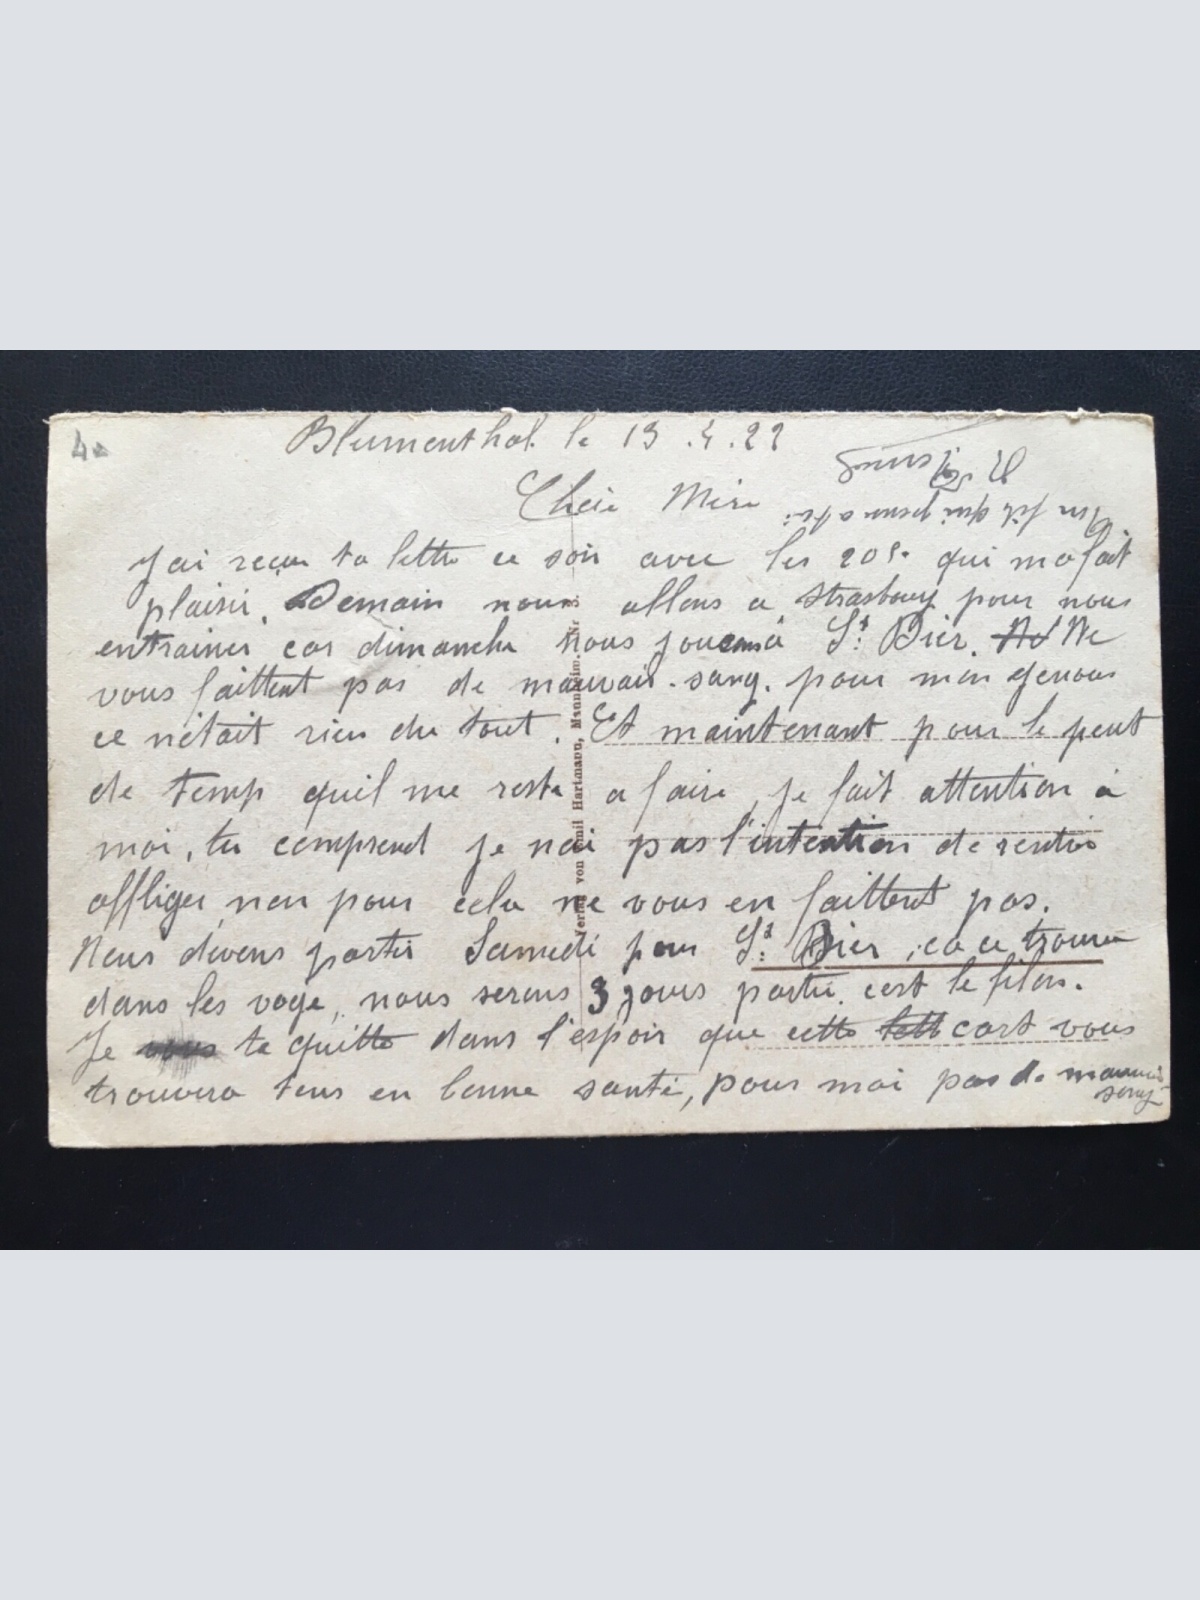 Blumenthal le 19.4.22
Chère Mère
J'ai reçu ta lettre ce soir avec les 20f. qui ma fait
plaisir. Demain nous allons a Strasbourg pour nous
entrainer car dimanche nous jouons à St Dier. Ne
vous faittent pas de mauvais sang, pour mon genoux
ce n'était rien du tout. Et maintenant pour le peut
de temp quil me reste a faire, je fait attention à
moi, tu comprend je nai pas l'intention de rentrer
affliger, non pour cela ne vous en faittent pas.
Nous devons partir Samedi pour St Dier, ca ce trouve
dans les voge, nous serons 3 jours partir. cest le filon.
Je te quitte dans l'espoir que cette cart vous
trouvera tous en bonne santé, pour moi pas de mauvais
sang
Ton fils qui pense a toi
Verlag von Emil Hartmann, Mannheim.